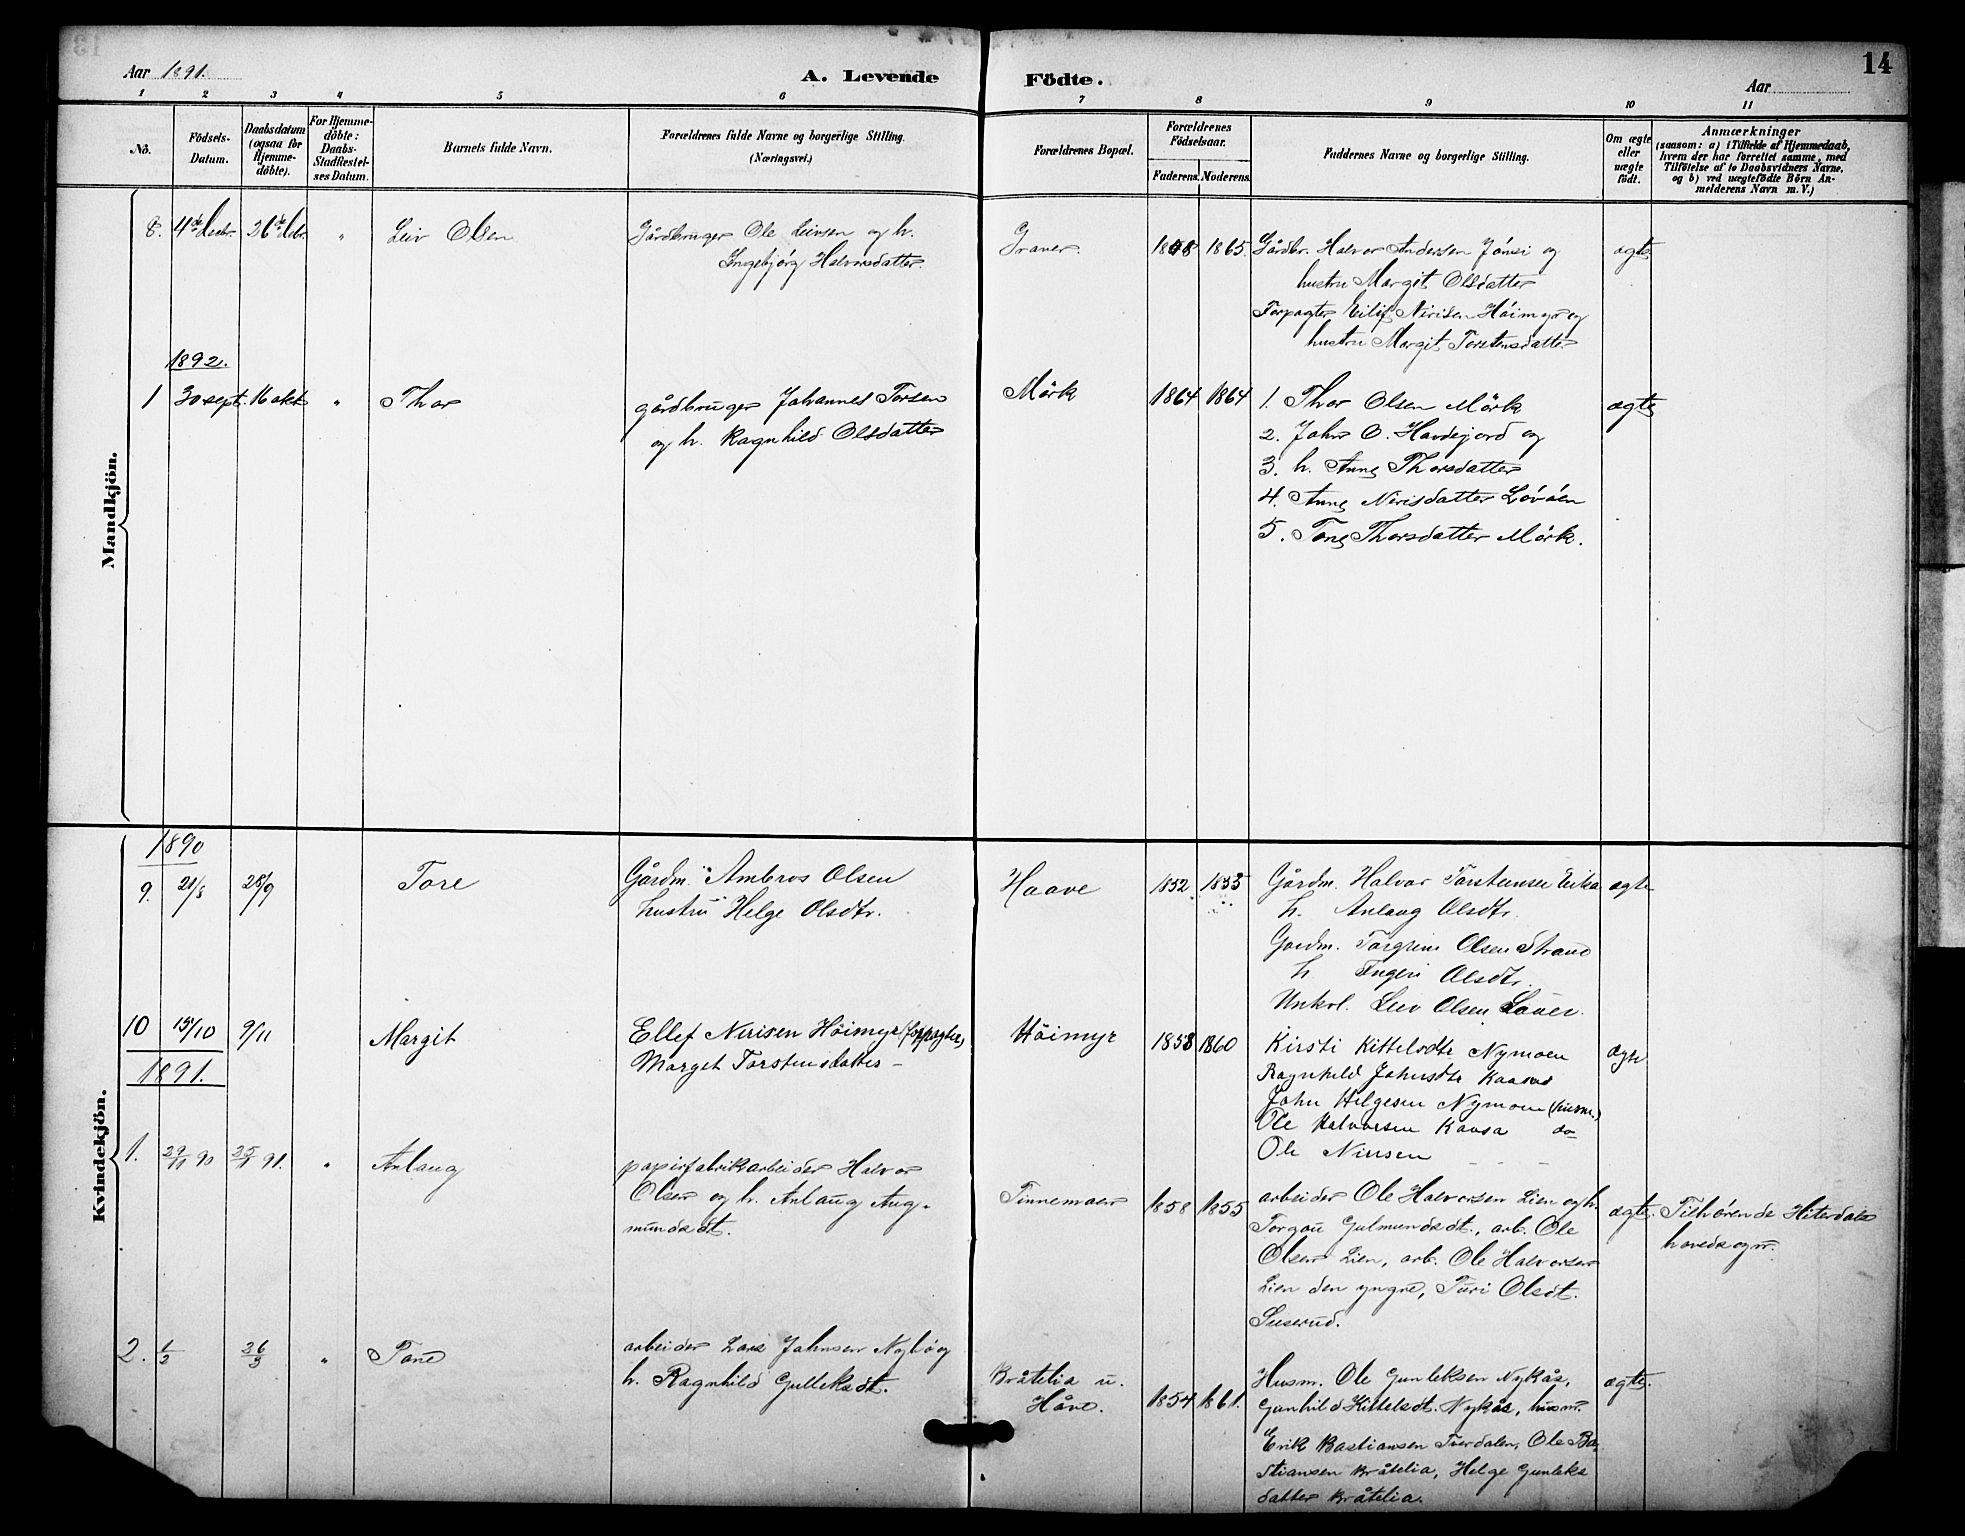 14
Aar 1891.
A. Levende Födte.
Aar
1 2 3 4 5 6 7 8 9 10 11
No.
Födsels-
Datum.
Daabsdatum
(ogsaa for
Hjemme-
döbte).
For Hjemme-
döbte:
Daabs-
Stadfæstel-
ses Datum.
Barnets fulde Navn.
Forældrenes fulde Navne og borgerlige Stilling.
(Næringsvei.)
Forældrenes Bopæl.
Forældrenes
Födselsaar.
Faderens. Moderens.
Faddernes Navne og borgerlige Stilling.
Om ægte
eller
uægte
födt.
Anmærkninger
(saasom: a) i Tilfælde af Hjemmedaab,
hvem der har forrettet samme, med
Tilföielse af to Daabsvidners Navne,
og b) ved uægtefödte Börn An-
melderens Navn m. V.)
Mandkjön.
8. 4de Decbr. 26de Dcbr. " Leiv Olsen
Gårdbruger Ole Leivsen og h.
Ingebjörg Halvorsdatter.
Graver. 1868 1865.
Gårdbr. Halvor Andersen Jönsi og
hustru Margit Olsdatter
Forpagter Eilif Nirisen Höimyr og
hustru Margit Torstensdatter
ægte
1892.
1 30 sept. 16 okt " Thor
gårdbruger Johannes Torsen
og h. Ragnhild Olsdatter
Mörk 1864 1864
1. Thor Olsen Mörk
2. John O. Havdejord og
3. h. Anne Thorsdatter
4. Anne Nirisdatter Lövöen
5. Tone Thorsdatter Mörk.
ægte
Kvindekjön.
1890
9. 21/8 28/9 Tore
Gårdm. Ambros Olsen
hustru Helge Olsdtr.
Haave 1852 1853
Gårdm. Halvor Torstensen Eika
h. Anlaug Olsdtr.
Gardm. Torgrim Olsen Strand
h. Ingeri Olsdtr.
Unkrl. Leiv Olsen
ægte
10 15/10 9/11 Margit
Ellef Nirisen Höimyr (forpagter)
Marget Torstensdatter -
Höimyr 1853 1860
Kirsti Kittelsdtr Nymoen
Ragnhild Johnsdtr Kaasa
John Helgesen Nymoen (husm.)
Ole Halvorsen Kaasa do
Ole Nirisen - - -
ægte
1891.
1. 29/11 90 25/1 91. " Anlaug
papirfabrikarbeider Halvor
Olsen og h. Anlaug Aug-
mundsdt.
Tinnemoen 1858 1855
arbeider Ole Halvorsen Lien og h.
Torgon Gulmundsdt., arb. Ole
Olsen Lien, arb. Ole Halvorsen
Lien den yngre, Turi Olsdt.
Suserud.
ægte.
Tilhörende Hiterdals
hovedsogn.
2. 1/2 26/3 " Tone
arbeider Lars Johnsen Nybö og
h. Ragnhild Gulleksdt.
Bråtelia u.
Håve.
1854 1861.
Husm. Ole Gunleksen Nykås,
Gunhild Kittelsdt. Nykås, husm.
Erik Bastiansen Tverdalen, Ole Ba-
stiansen Bråtelia, Helge Gunleks
datter Bråtelia.
ægte.